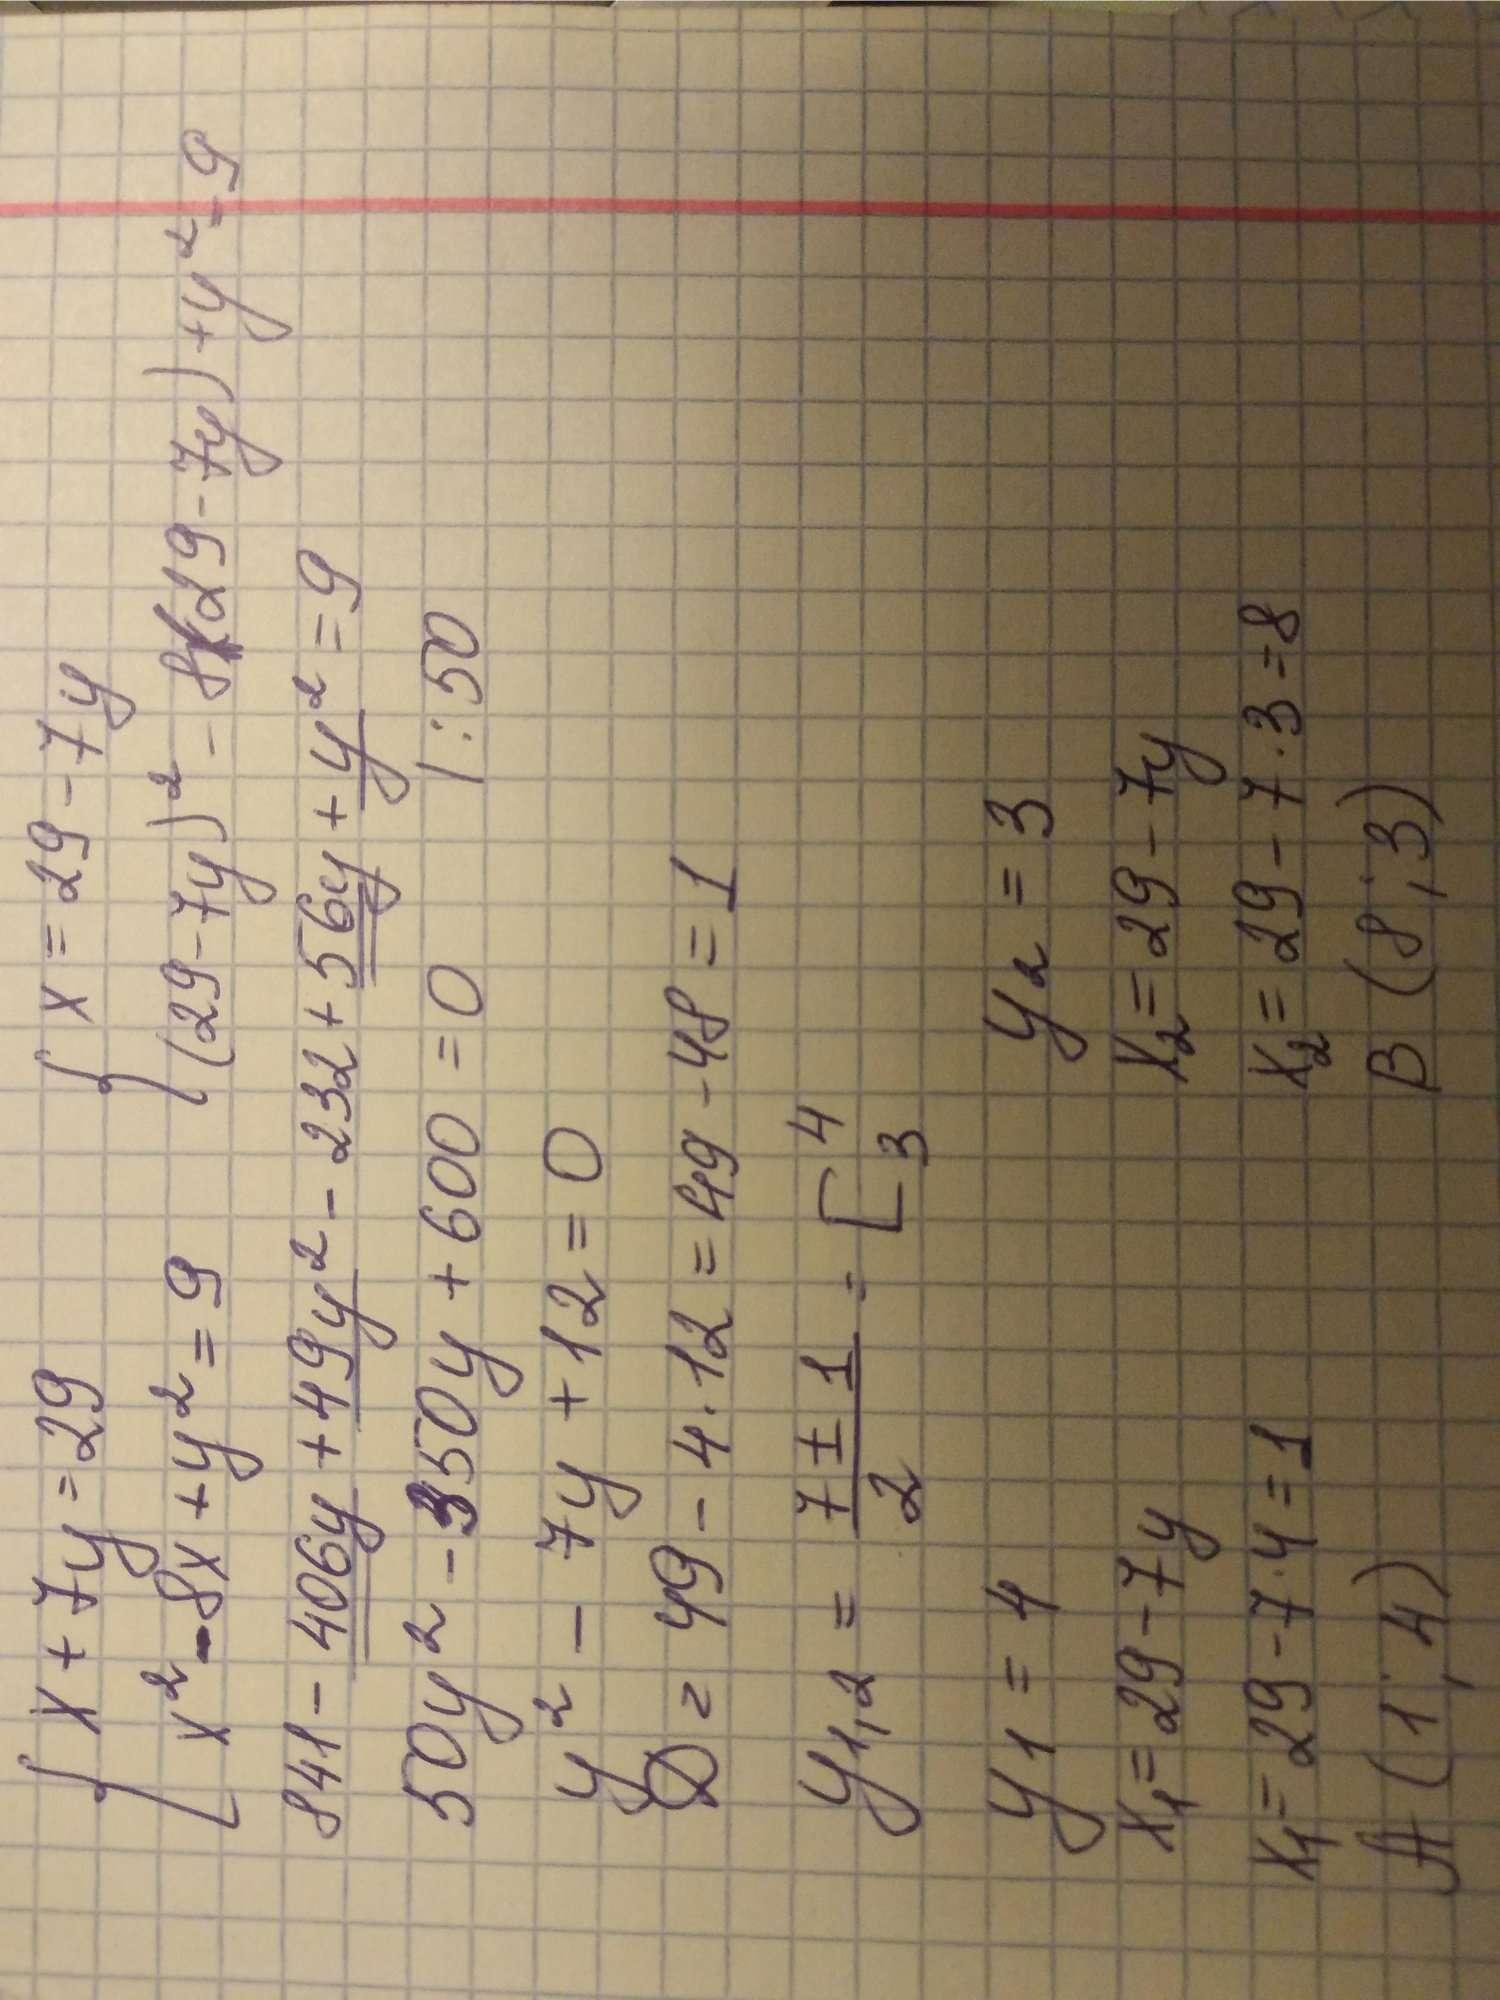 { x + 7y = 29 { x = 29 - 7y
x² - 8x + y² = 9 (29 - 7y)² - 8(29 - 7y) + y² = 9
841 - 406y + 49y² - 232 + 56y + y² = 9
50y² - 350y + 600 = 0 | : 50
y² - 7y + 12 = 0
D = 49 - 4 · 12 = 49 - 48 = 1
y1,2 = (7 ± 1)/2 = [ 4
3
y1 = 4 y2 = 3
x1 = 29 - 7y x2 = 29 - 7y
x1 = 29 - 7 · 4 = 1 x2 = 29 - 7 · 3 = 8
A (1; 4) B (8; 3)